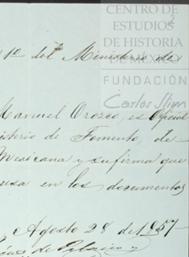 CENTRO DE
ESTUDIOS
DE HISTORIA
FUNDACIÓN
Carlos Slim
1º del Ministerio de
Manuel Orozco, es Oficial
isterio de Fomento de
Mexicana y su firma que
usa en los documentos
Agosto 28 de 1857